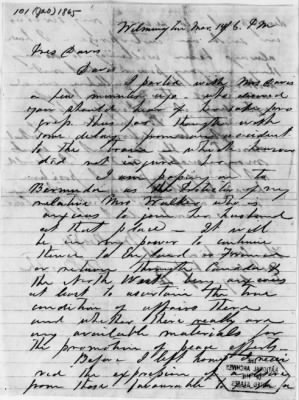 101 (Dec) 1865
Wilmington Mar 1st 6. P.M
Pres Davis
I parted with Mrs Davis
a few minutes ago who desired
you should hear of her safe pro
gress thus far though with
some delay from an accident
to the train which however
did not injure her
I am passing on to
Bermuda as the Protector of my
relative Mrs Walker who is
anxious to join her husband
at that place – It will
be in my power to continue
thence to the South or Northward
or return through Canada &
the North West being anxious
at least to ascertain the true
condition of affairs there
and whether there really are
any available materials for
the promotion of peace efforts
Before I left home I recei
ved the expression of a
from those favourable to such a